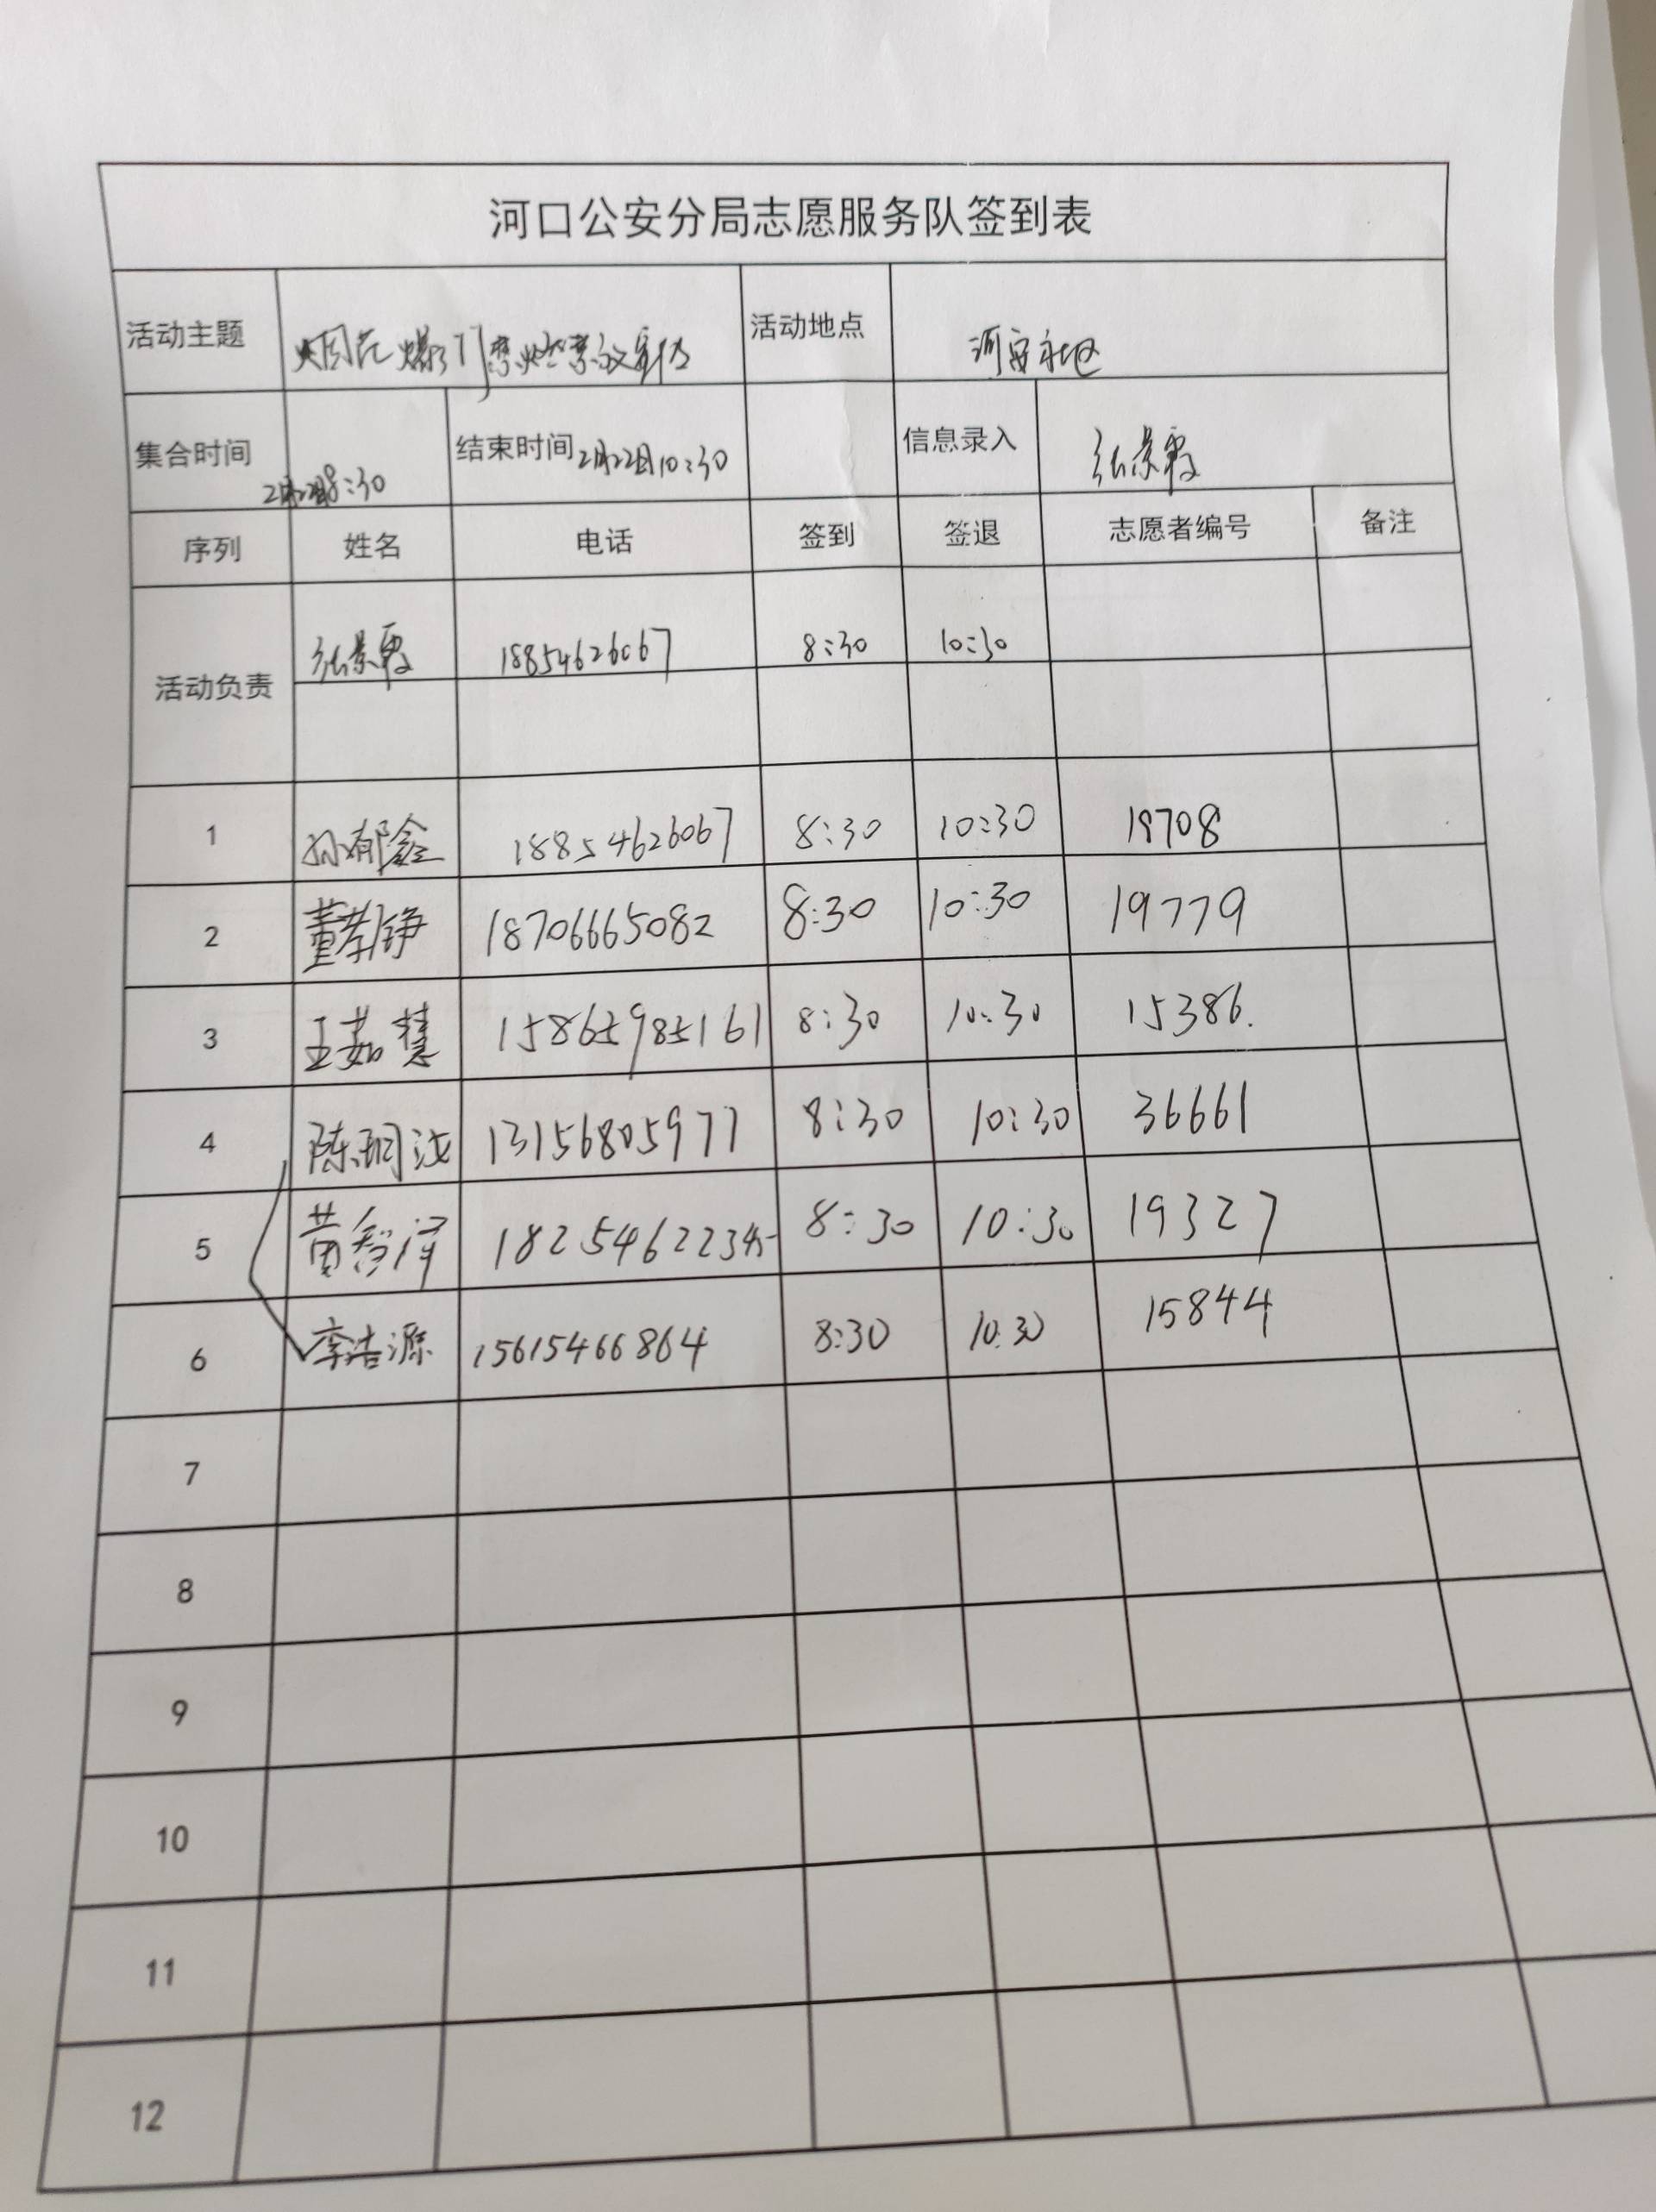 河口公安分局志愿服务队签到表
活动主题 烟花爆竹禁燃禁放宣传 活动地点 河安社区
集合时间 2月22日8:30 结束时间 2月22日10:30 信息录入 张景霞
序列 姓名 电话 签到 签退 志愿者编号 备注
活动负责 张景霞 18854626067 8:30 10:30
1 孙郁鑫 18854626067 8:30 10:30 19708
2 董孝铮 18706665082 8:30 10:30 19779
3 王茹慧 15865985161 8:30 10:30 15386.
4 陈珂汝 13156805977 8:30 10:30 36661
5 黄智泽 8:30 10:30 19327
6 李浩源 15615466864 8:30 10:30 15844
7
8
9
10
11
12